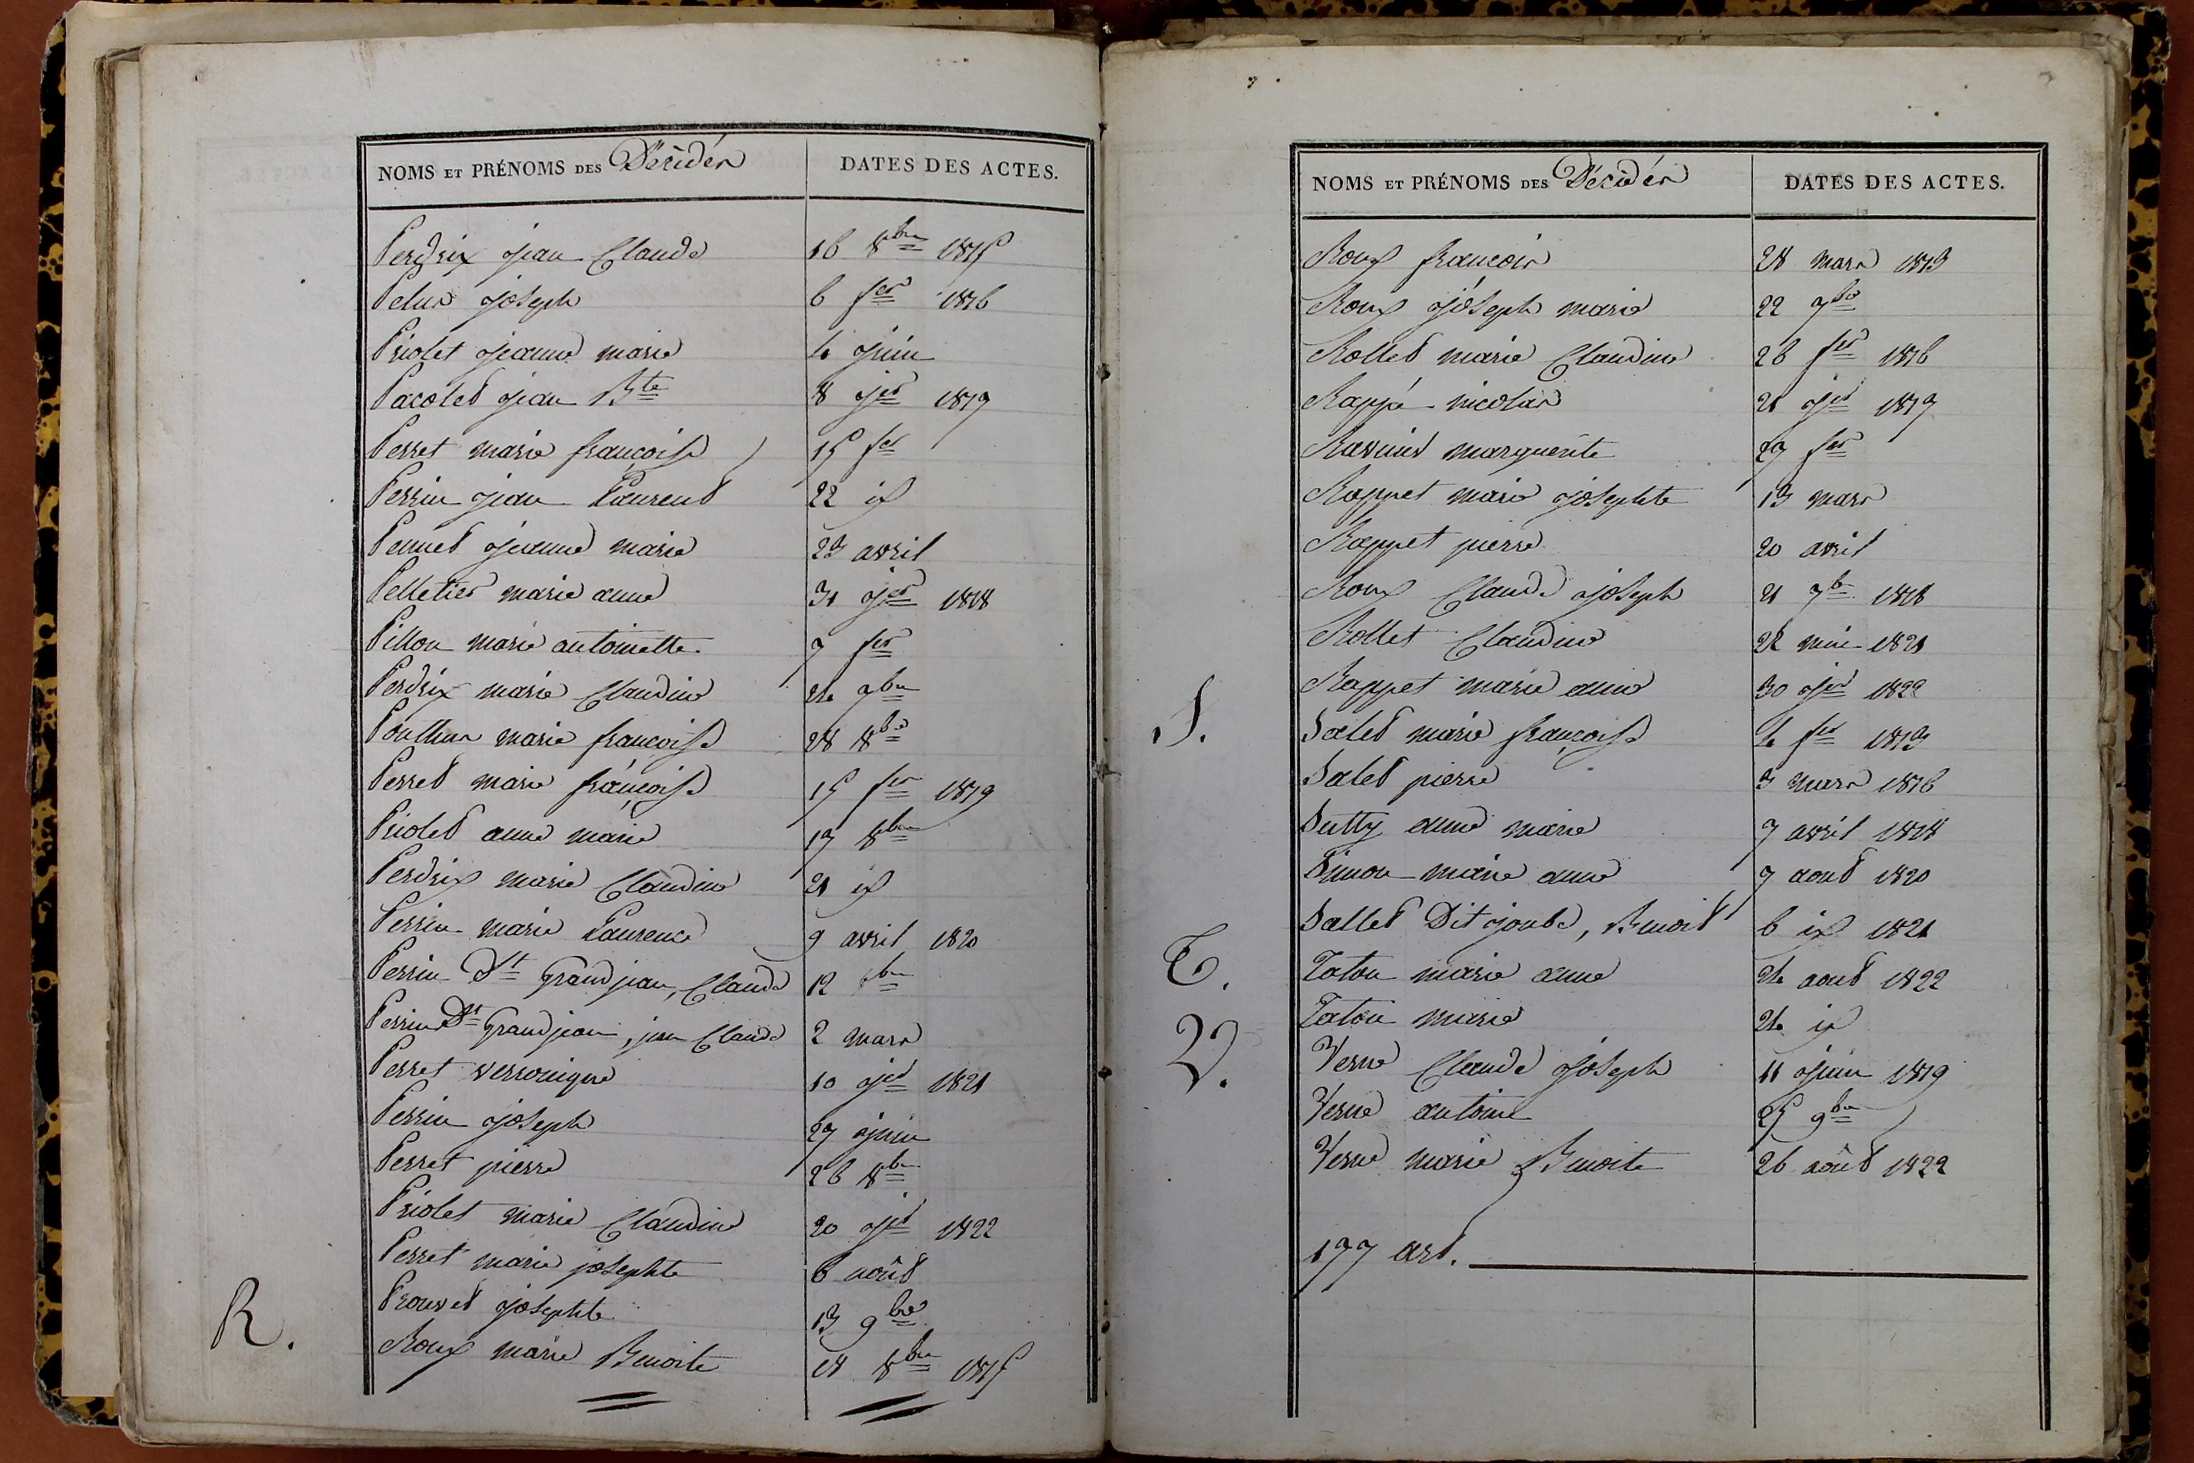 NOMS ET PRÉNOMS DES Décédés DATES DES ACTES.
Perdrix jean Claude 16 8bre 1815
Pelus joseph 6 fer 1816
Priolet jeanne marie 4 juin
Pacolet jean Bte 8 jer 1817
Perret marie françoise 15 fer
Perrin jean Laurent 22 id
Pennet jeanne marie 23 avril
Pelletier marie anne 31 jer 1818
Pillon marie antoinette 7 fer
Perdrix marie Claudine 24 7bre
Ponthus marie françoise 28 8bre
Perret marie françoise 15 fer 1819
Priolet anne marie 17 8bre
Perdrix marie Claudine 21 id
Perrin marie Laurence 9 avril 1820
Perrin dit Grandjean, Claude 12 bre
Perrin dit Grandjean, jean Claude 2 mars
Perret verronique 10 jer 1821
Perrin joseph 27 juin
Perret pierre 26 8bre
Priolet marie Claudine 20 jer 1822
Perret marie josephte 6 août
Prouvet josephte 13 9bre
R. Roux marie Benoite 18 8bre 1815
NOMS ET PRÉNOMS DES Décédés DATES DES ACTES.
Roux françois 28 mars 1813
Roux joseph marie 22 7bre
Rollet marie Claudine 26 fer 1816
Rappé nicolas 21 jer 1817
Ravinet marguerite 27 fer
Rappet marie josephte 13 mars
Rappet pierre 20 avril
Roux Claude joseph 21 7bre 1818
Rollet Claudine 22 mai 1821
Rappet marie anne 30 jer 1822
S. Salet marie françoise 4 fer 1813
Salet pierre 3 mars 1816
Sutty anne marie 7 avril 1818
Simon marie anne 7 aout 1820
Sallet Dit joube, Benoit 6 id 1821
T. Taton marie anne 24 aout 1822
Taton marie 24 id
V. Verne Claude joseph 11 juin 1819
Verne antoine 25 9bre
Verne marie Benoite 26 août 1822
177 art.